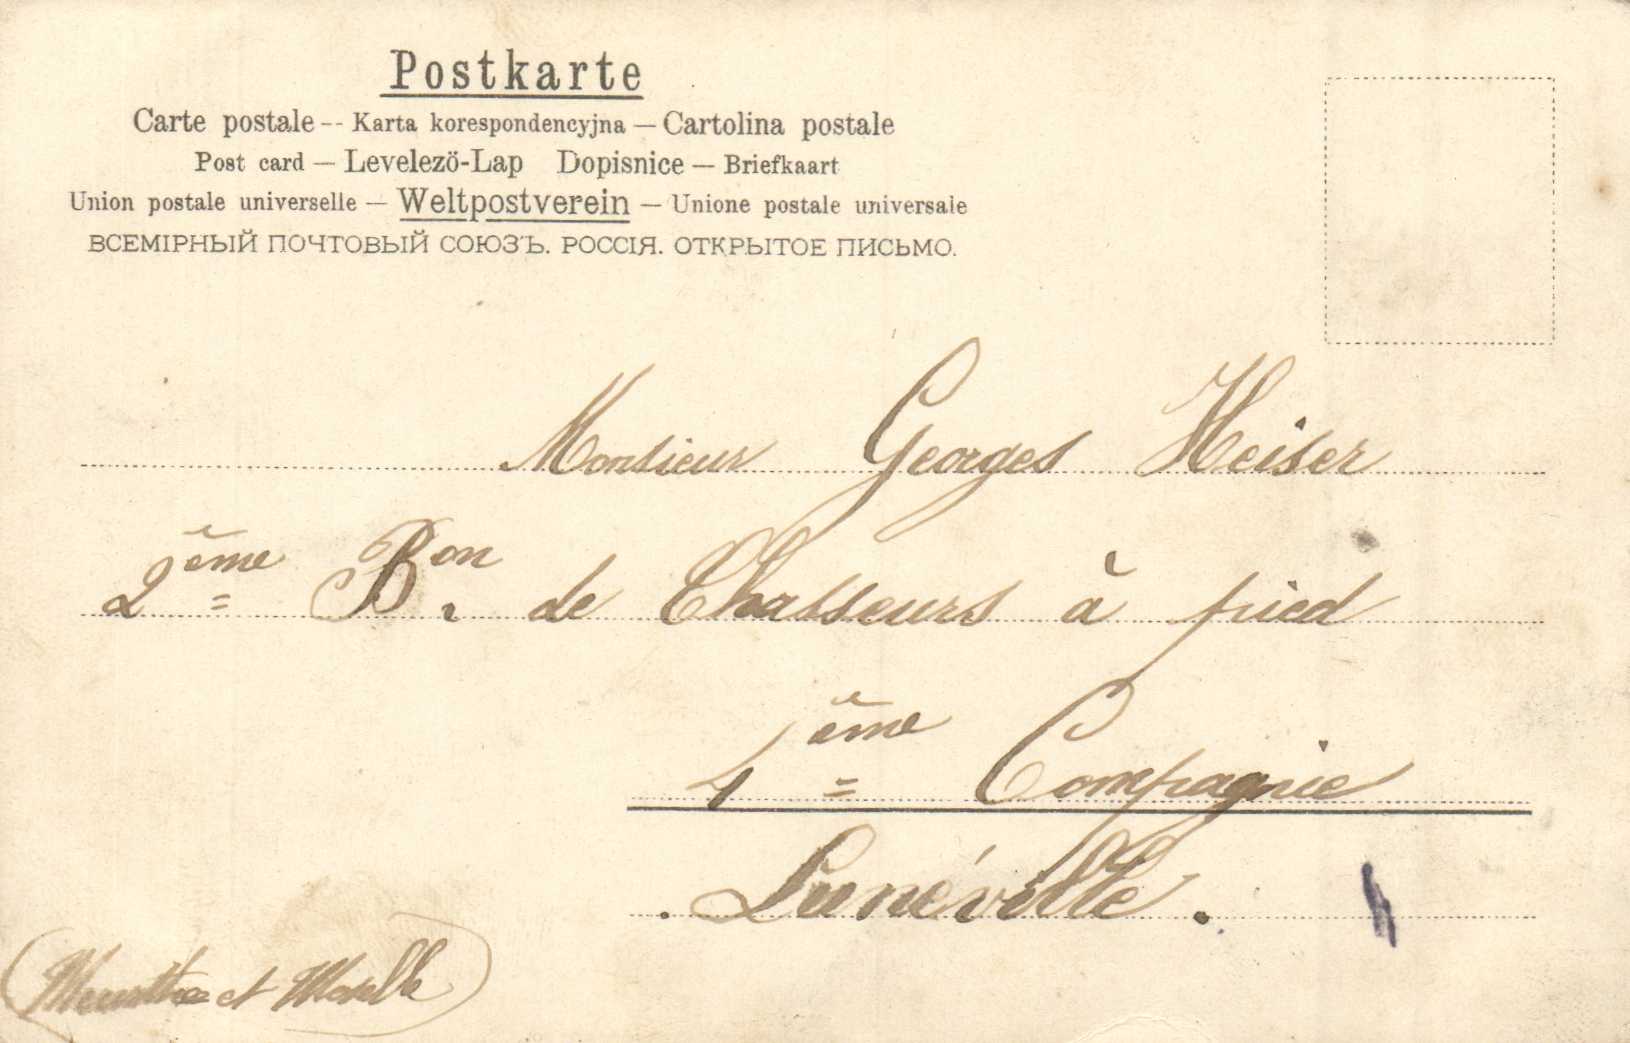 Postkarte
Carte postale -- Karta korespondencyjna — Cartolina postale
Post card — Levelezö-Lap Dopisnice — Briefkaart
Union postale universelle — Weltpostverein — Unione postale universale
ВСЕМІРНЫЙ ПОЧТОВЫЙ СОЮЗЪ. РОССІЯ. ОТКРЫТОЕ ПИСЬМО.
Monsieur Georges Heiser
2ème Bon. de Chasseurs à pied
4ème Compagnie
. Lunéville .
(Meurthe et Moselle)